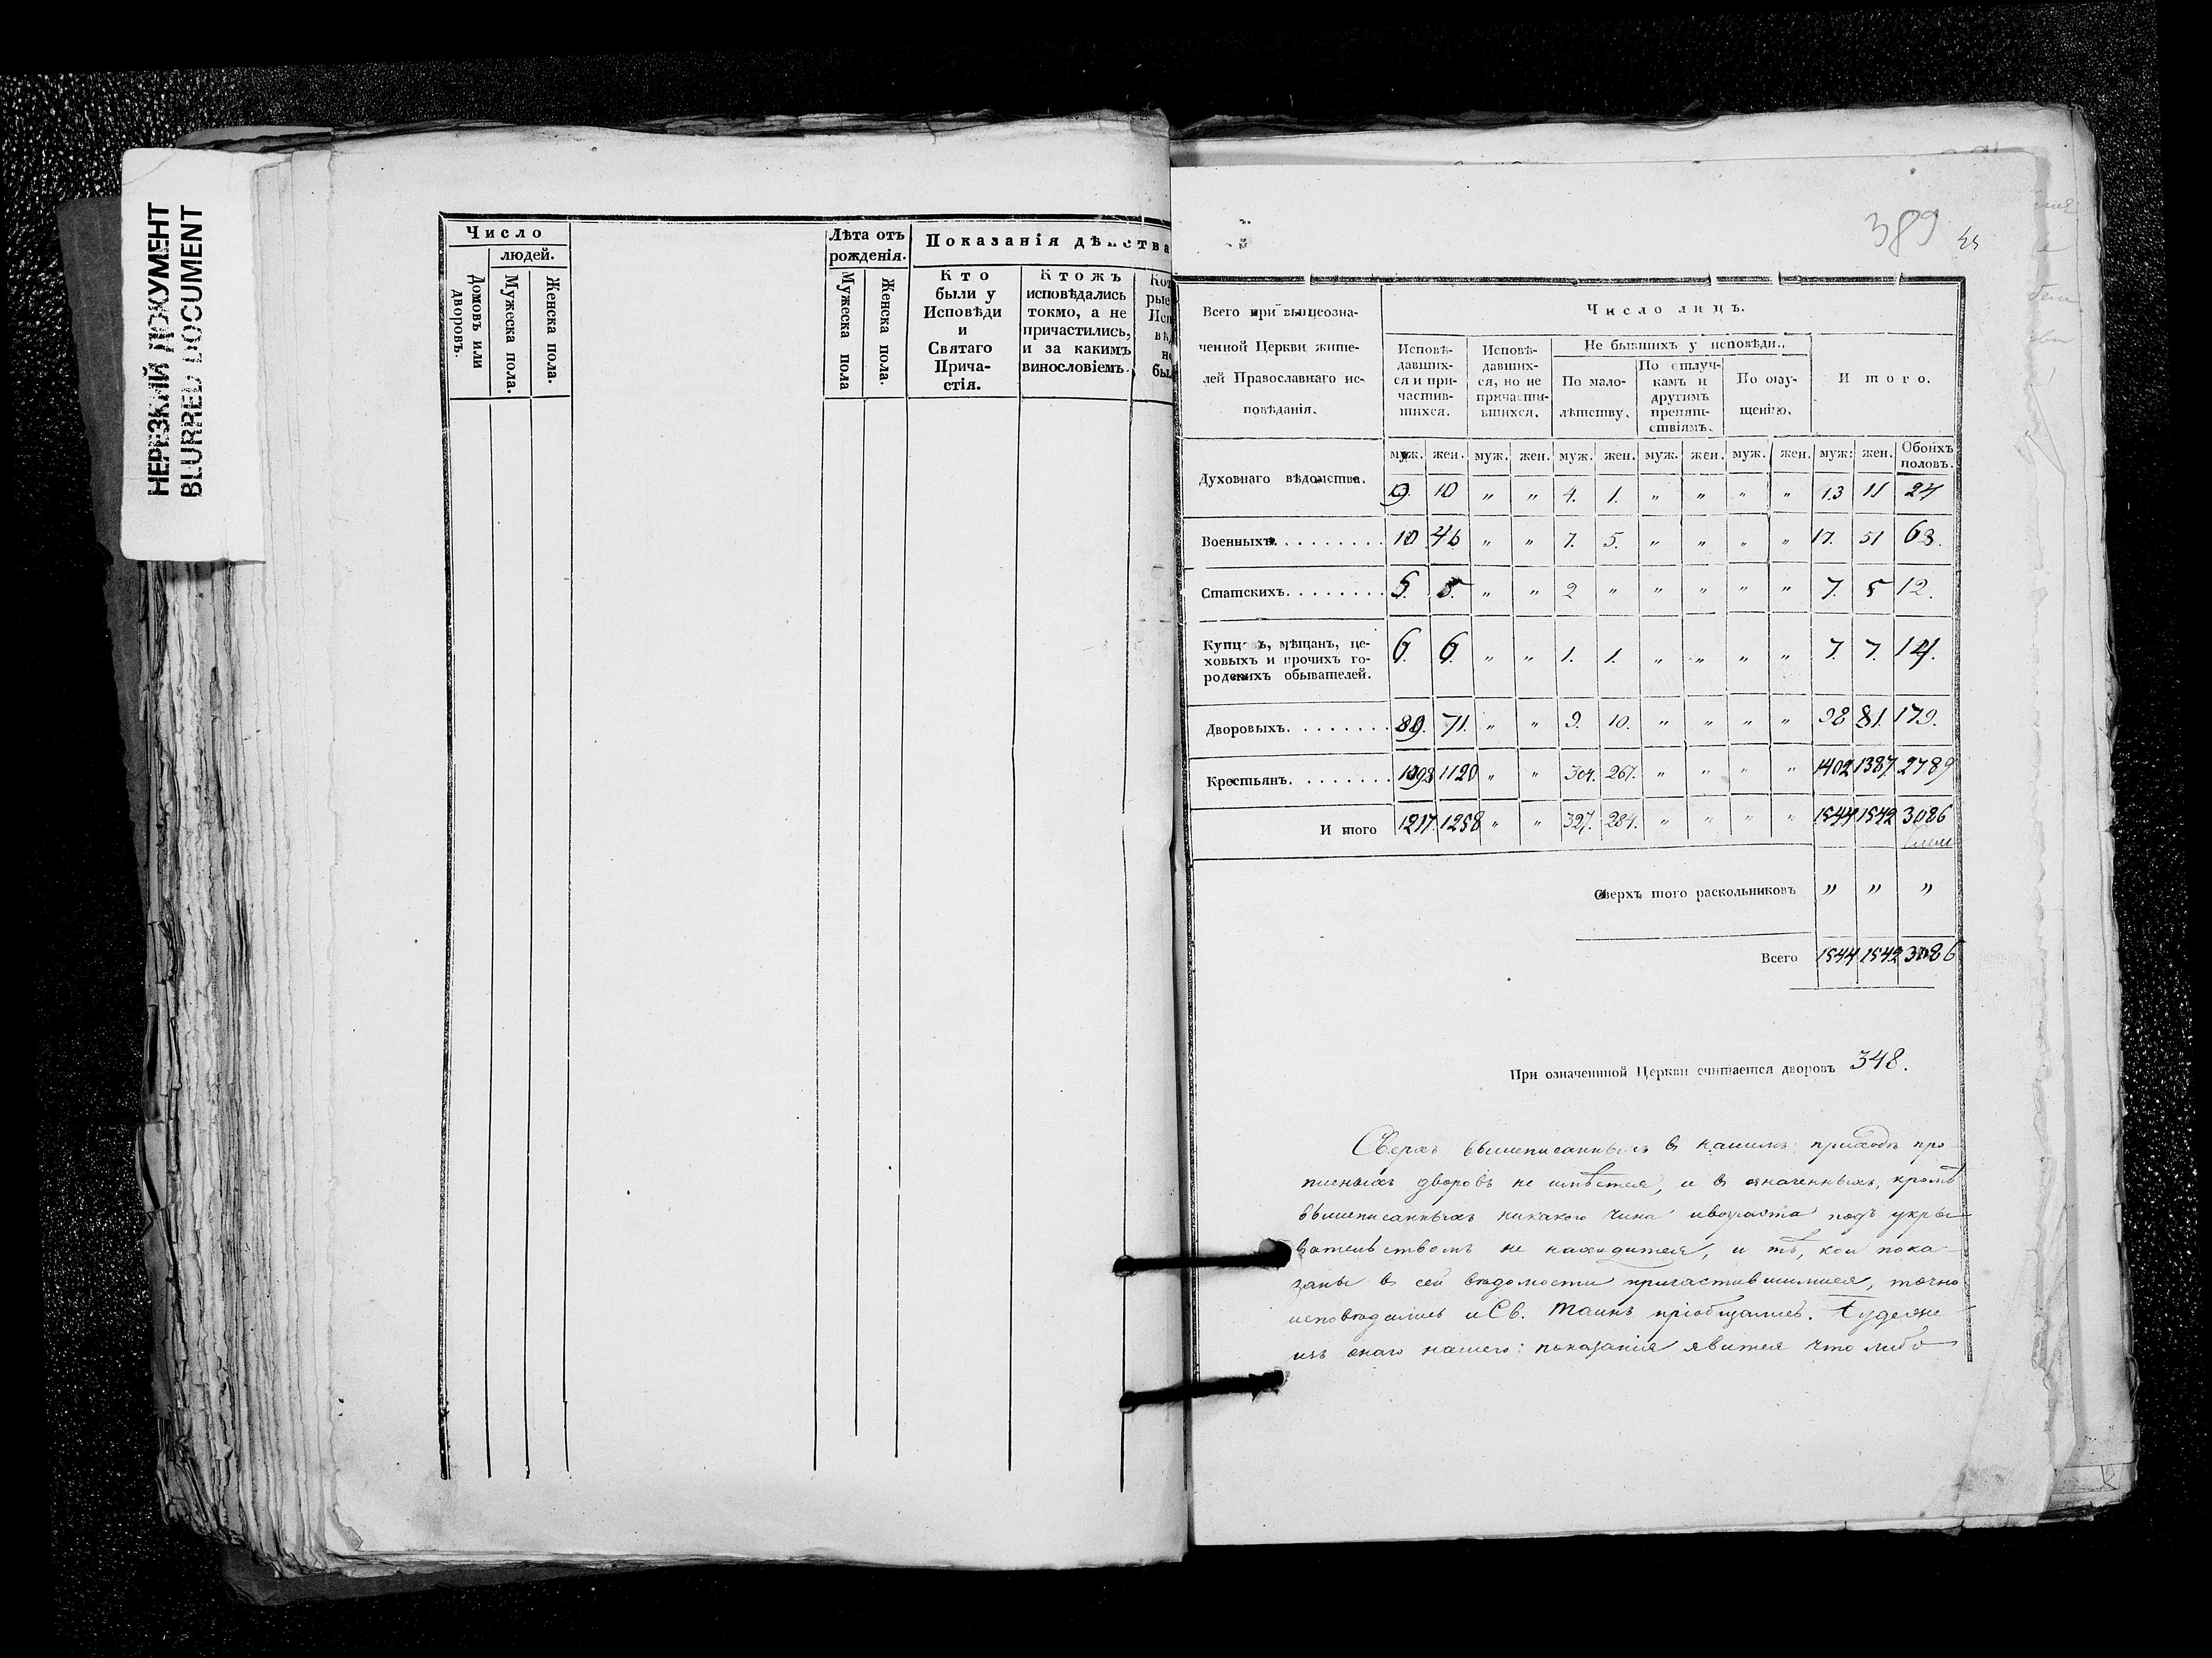 НЕРЕЗКИЙ ДОКУМЕНТ
BLURRED DOCUMENT
Число
людей.
Домовъ или дворовъ.
Мужеска пола.
Женска пола.
Лѣта отъ рожденія.
Мужеска пола
Женска пола.
Показанія дѣйства
Кто были у Исповѣди и Святаго Прича-стія.
Ктожъ исповѣдались токмо, а не причастились, и за какимъ винословіемъ.
389
Всего при вышеозна-
ченной Церкви жите-
лей Православнаго ис-
повѣданія.
Число лицъ.
Исповѣ-давших-ся и при-частив-шихся.
Исповѣ-давших-ся, но не причасти-вшихся.
Не бывшихъ у исповѣди.
По мало-лѣтству.
По отлуч-камъ и другимъ препят-ствіямъ.
По опу-щенію.
Итого.
муж. жен. муж. жен. муж. жен. муж. жен. муж. жен. муж. жен. Обоихъ половъ.
Духовнаго вѣдомства. 9. 10 " " 4. 1. " " " " 13 11 24
Военныхъ. 10 46 " " 7. 5. " " " " 17. 51 68.
Статскихъ. 5. 5. " " 2 " " " " " 7. 5 12.
Купцовъ, мѣщанъ, це-
ховыхъ и прочихъ го-
родскихъ обывателей. 6. 6. " " 1. 1. " " " " 7. 7. 14.
Дворовыхъ. 89. 71. " " 9. 10. " " " " 98 81. 179.
Крестьянъ. 1098 1120 " " 304. 267. " " " " 1402 1387 2789
Итого 1217. 1258 " " 327. 284. " " " " 1544 1542 3086
Сверхъ того раскольниковъ " " "
Всего 1544 1542 3086
При означенной Церкви считается дворовъ 348.
Сверхъ вышеписанныхъ в нашемъ приходѣ про-
писныхъ дворовъ не имѣется, и в означенныхъ, кромѣ
вышеписанныхъ никакого чина ивозраста подъ укры-
вательствомъ не находится, и тѣ, кои пока-
заны в сей вѣдомости причастившимися, точно
исповѣдались и Св. Таинъ пріобщались. Будеже
изъ онаго нашего показанія явится что либо